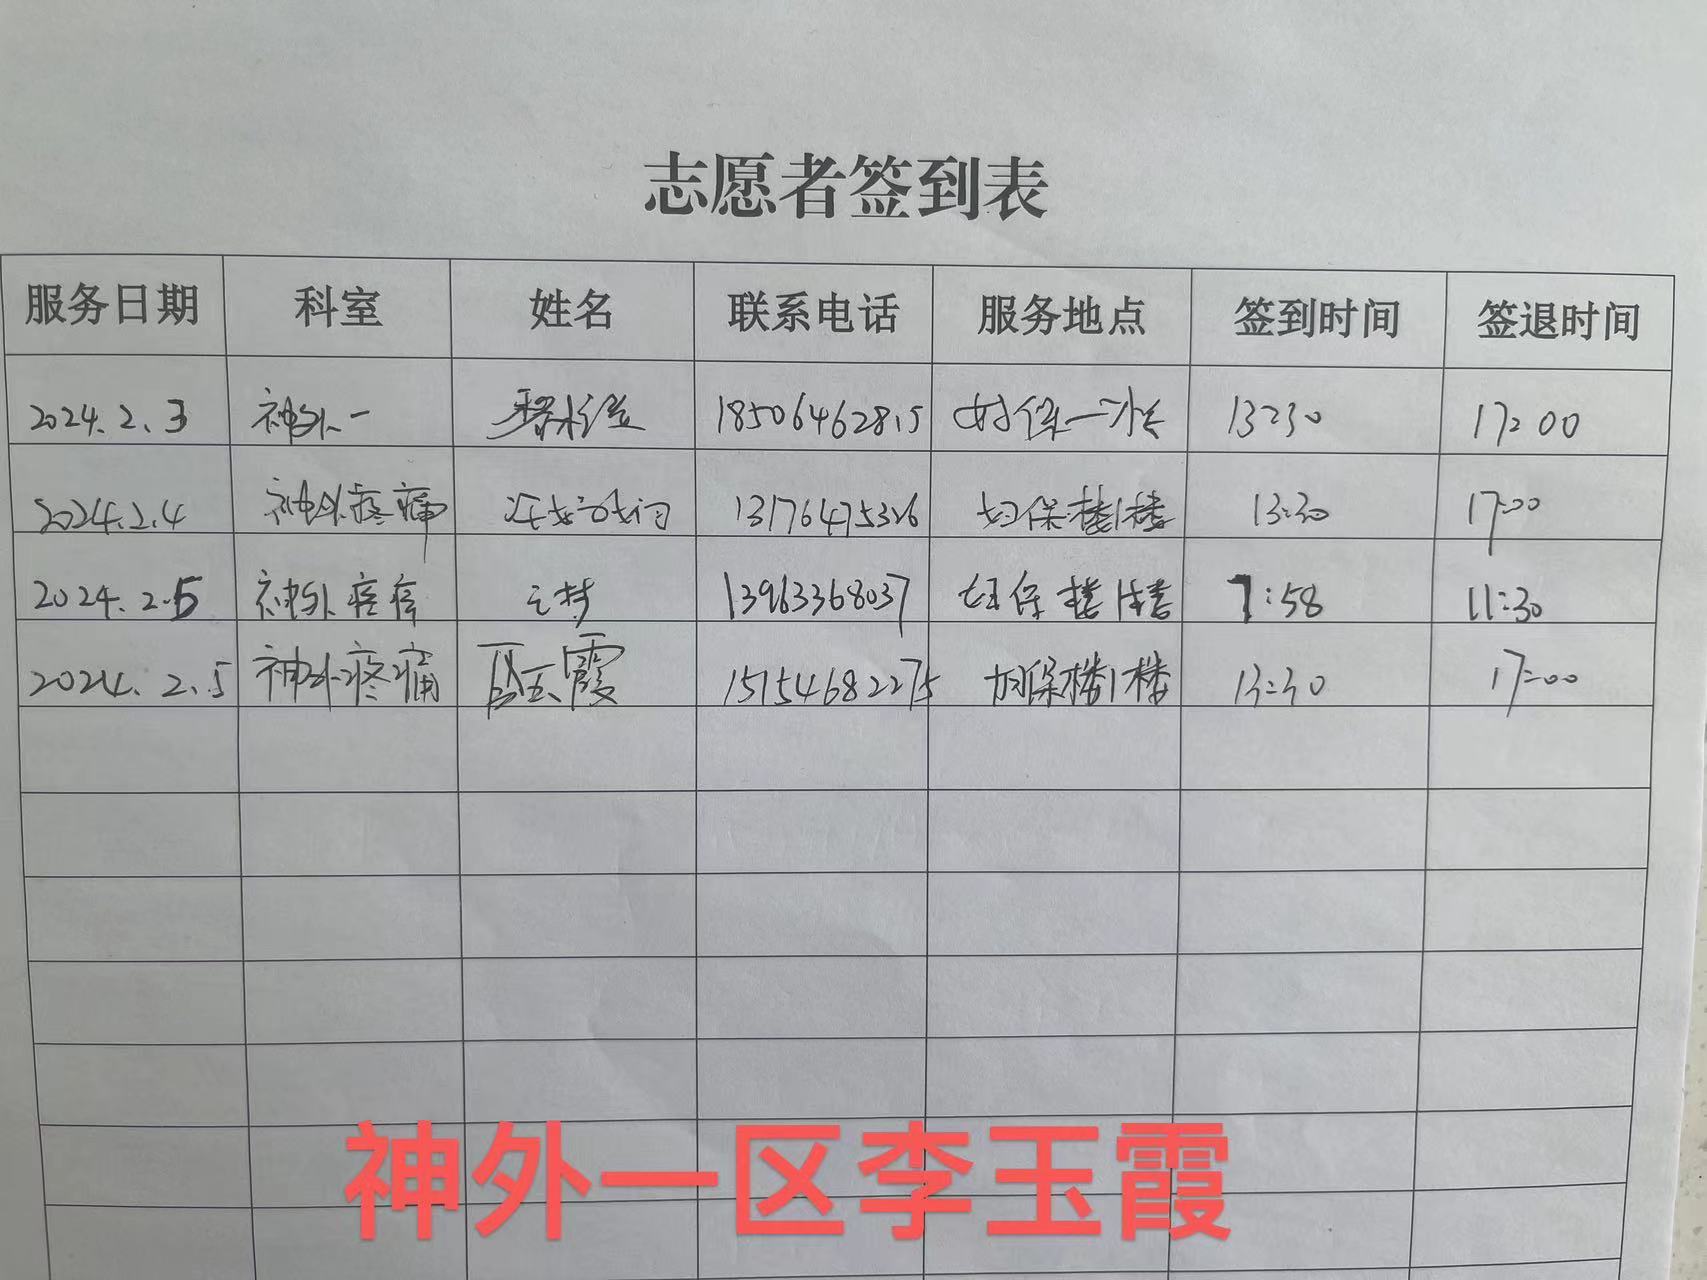 志愿者签到表
服务日期 科室 姓名 联系电话 服务地点 签到时间 签退时间
2024.2.3 神外一 18506462815 妇保一 13:30 17:00
2024.2.4 神外疼痛 13176475326 妇保楼1楼 13:30 17:00
2024.2.5 神外疼痛 13963368037 妇保楼1楼 7:58 11:30
2024.2.5 神外疼痛 玉霞 15154682275 妇保楼1楼 13:30 17:00
神外一区李玉霞